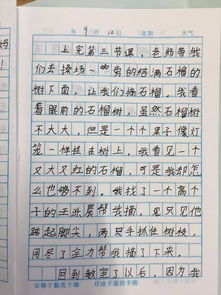 年 9月 12日 星期 天气
上完第三节课，老师带我
们去操场一旁的结满石榴的
树下面，让我们摘石榴，我看
看眼前的石榴树，虽然石榴树
不大，但是一个个果子像灯
笼一样挂在树上，我看见一个
又大又红的石榴，可是我却怎
么也够不到，我找了一个高个
子的王乐晨帮我摘，见只见他
踮起脚尖，两只手抓住树枝，
用尽了全力帮我摘了下来。
回到教室了以后，因为我